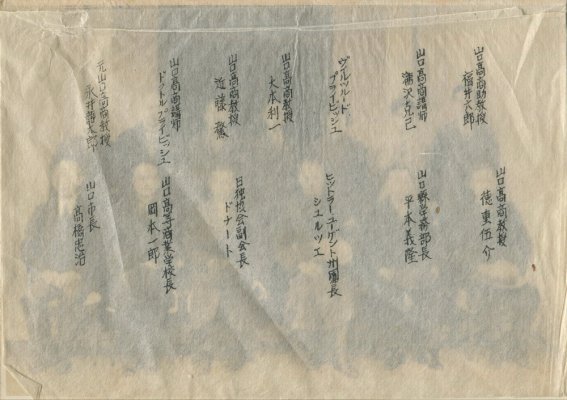 山口高商助教授
福井六郎
山口高商講師
瀧沢克己
ヴルツルード
フライビッシュ
山口高商教授
大本利一
山口高商教授
近藤
山口高商講師
ドクトルフライビッシュ
元山口高商教授
永井 太郎
山口高商教授
徳重伍介
山口縣学務部長
平本義隆
ヒットラーユーゲント州團長
シュルツエ
日独協会副会長
ドナート
山口高等商業学校長
岡本一郎
山口市長
高橋忠治